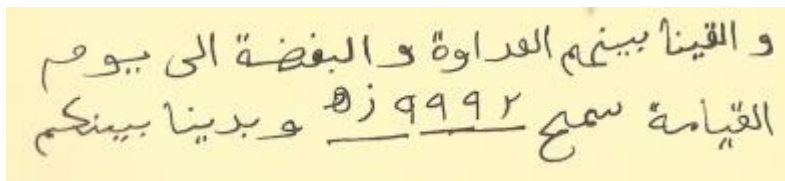 و القينا بينهم العداوة و البغضة الى يوم
القيامة ٩٩٩٢ و بدينا بينكم